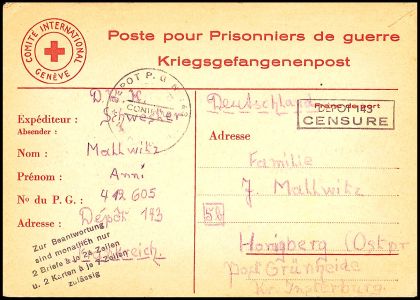 COMITÉ INTERNATIONAL
GENÈVE
Poste pour Prisonniers de guerre
Kriegsgefangenenpost
D.R.K.
Schwester
Expéditeur :
Absender :
Nom : Mallwitz
Prénom : Anni
No du P. G. : 412605
Adresse : Dépôt 143
Frankreich
Zur Beantwortung
sind monatlich nur
2 Briefe à je 26 Zeilen
u. 2 Karten à je 7 Zeilen
zulässig
Deutschland
DEPOT 143
CENSURE
Adresse
Familie
J. Mallwitz
Honigberg (Ostpr.
Post Grünheide
Kr. Insterburg